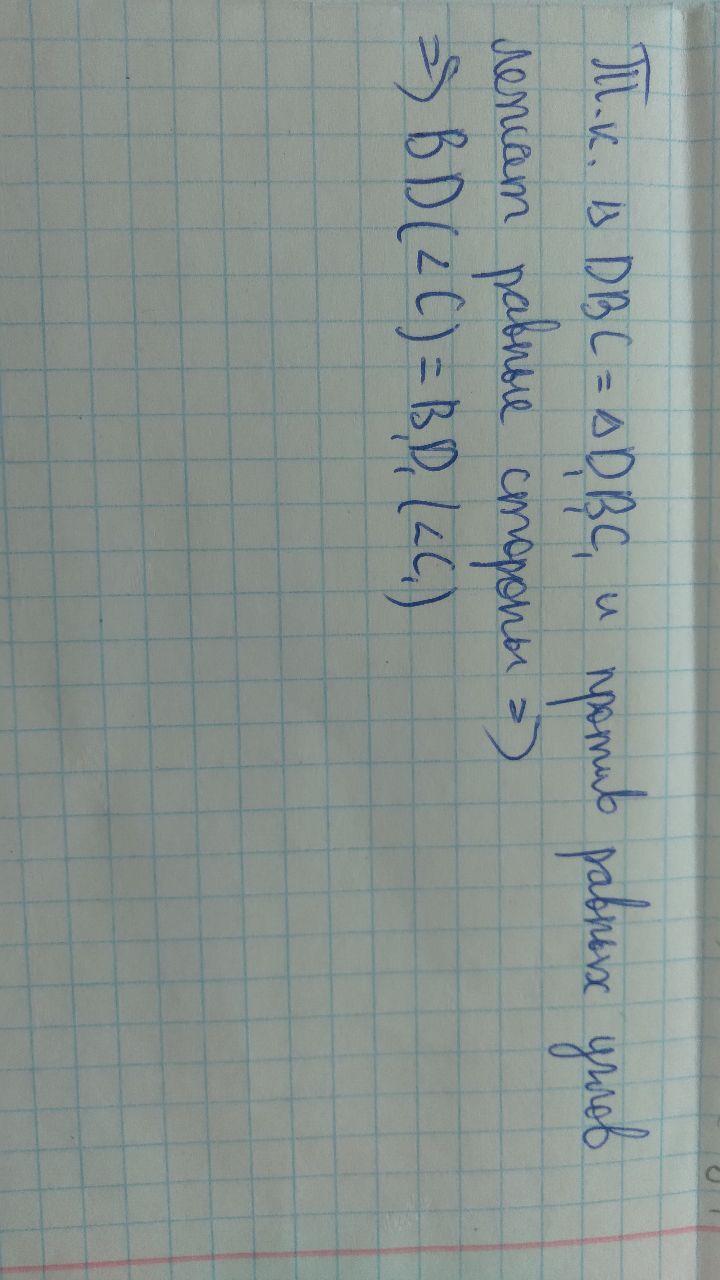 Т.к. ▵ DBC = ▵ D₁B₁C₁ и против равных углов
лежат равные стороны =>
=> BD (∠C) = B₁D₁ (∠C₁)